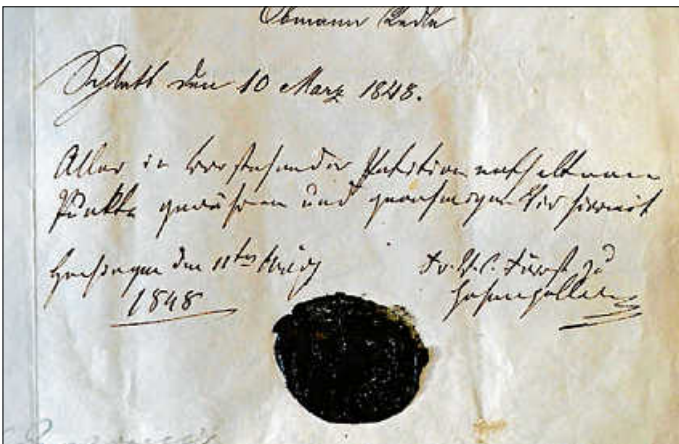 Obmann
Schlatt den 10 März 1848.
Alles in vorstehender Petition enthaltenen
Punkte gewähren und genehmigen Wir hiermit
Hechingen den 11ten März
1848
Fr. W. C. Fürst zu
Hohenzollern